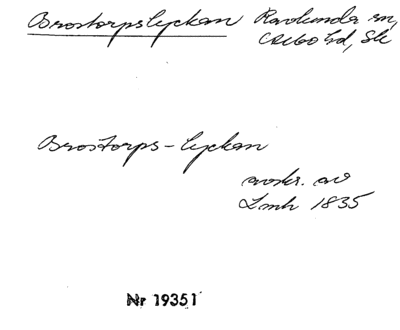 Brostorpslyckan Ravlunda sn,
Albo hd, Sk
Brostorps-lyckan
avskr. av
Lmh 1835
Nr 19351